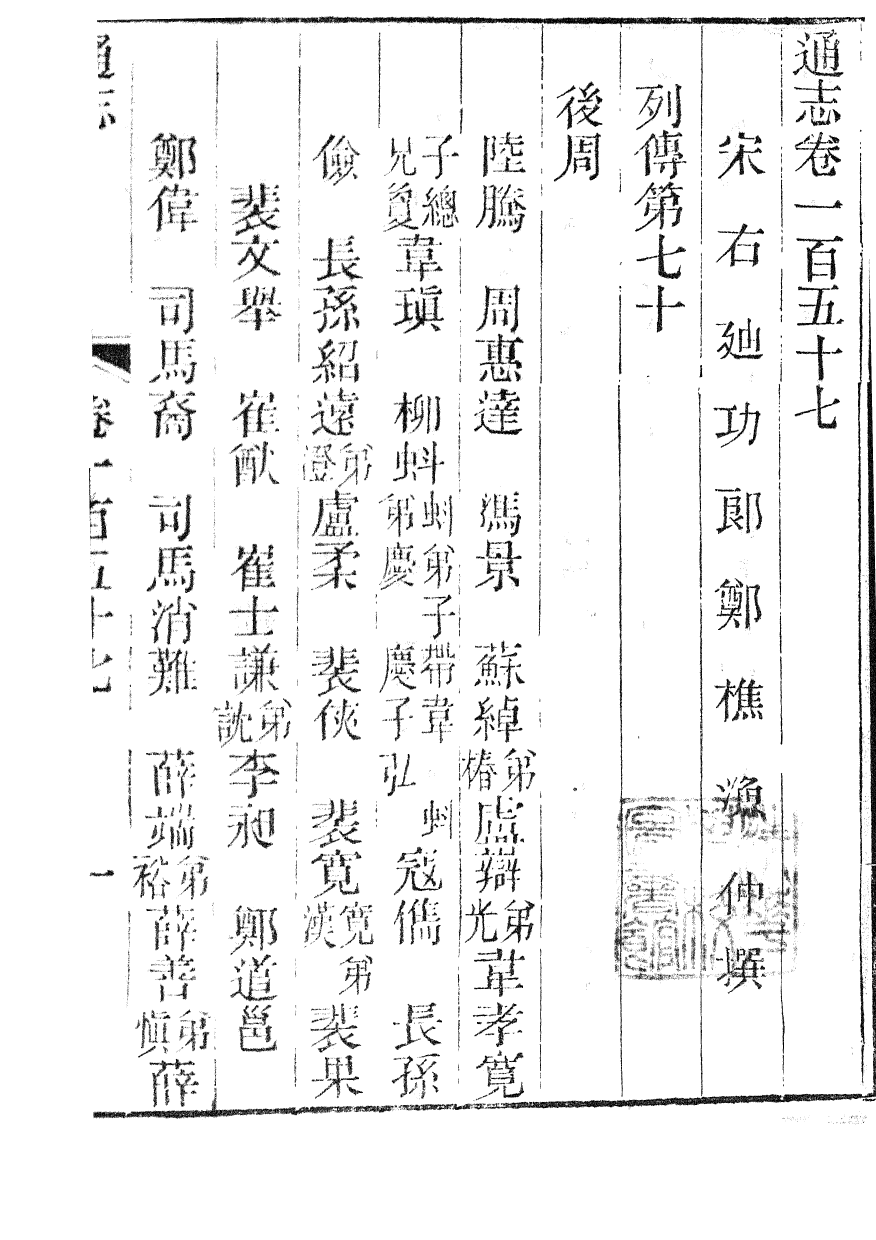 通志卷一百五十七
宋右廸功郎鄭樵漁仲撰
列傳第七十
後周
陸騰　周惠達　馮景　蘇綽弟椿　盧辯弟光　韋孝寬
子總兄敻　韋瑱　柳蚪蚪弟子帶韋蚪弟慶慶子弘　寇儁　長孫
儉　長孫紹遠弟澄　盧柔　裴俠　裴寬寬弟漢　裴果
裴文舉　崔猷　崔士謙弟訦　李昶　鄭道邕
鄭偉　司馬裔　司馬消難　薛端弟裕　薛善弟慎　薛
通志　卷一百五十七　一